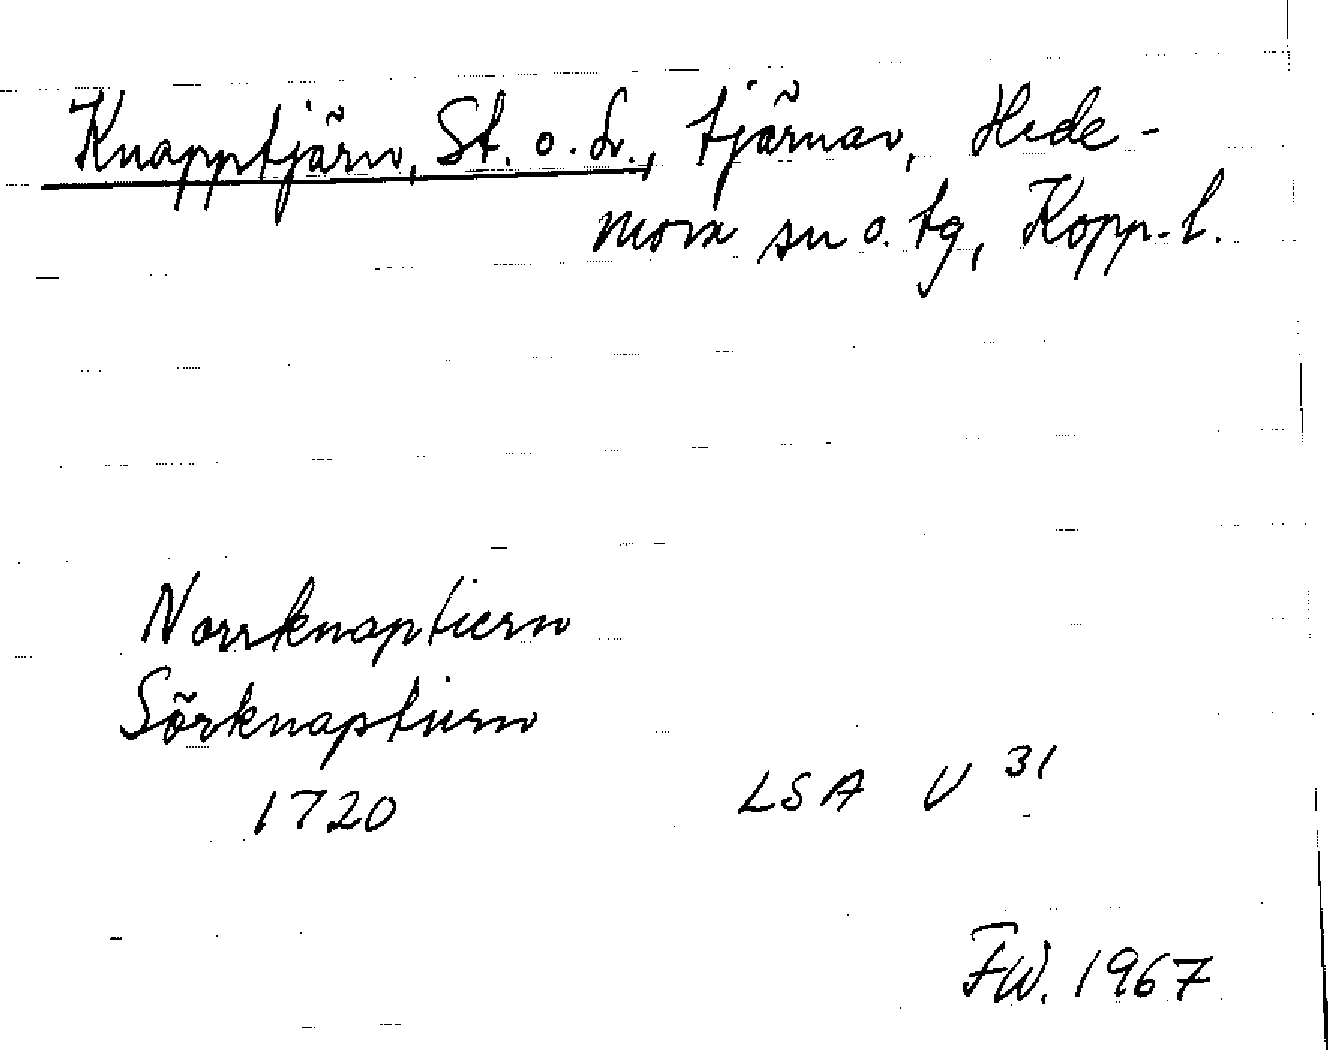 Knapptjärn, St. o. L., tjärnar, Hede-
mora sn o. tg, Kopp. l.
Norrknaptiern
Sörknaptiern
1720
LSA U 31
FW. 1967